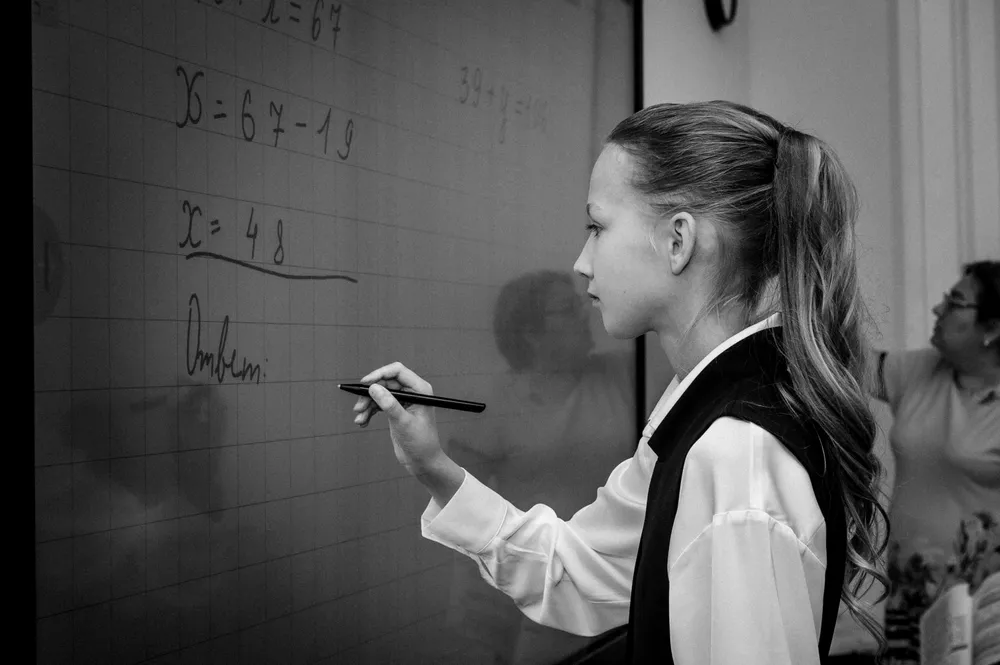 = 67
x = 67 - 19
x = 48
Ответ:
39 + y =